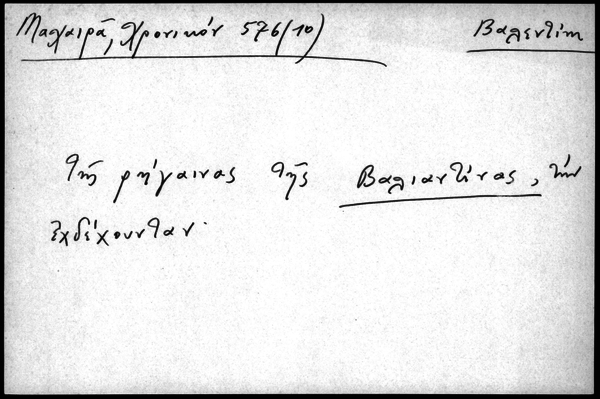 Μαχαιρᾶ, Χρονικόν 576(10)
Βαλεντίνη
τῆς ρήγαινας τῆς Βαλιαντίνας, τὴν
ἐχδέχουνταν.